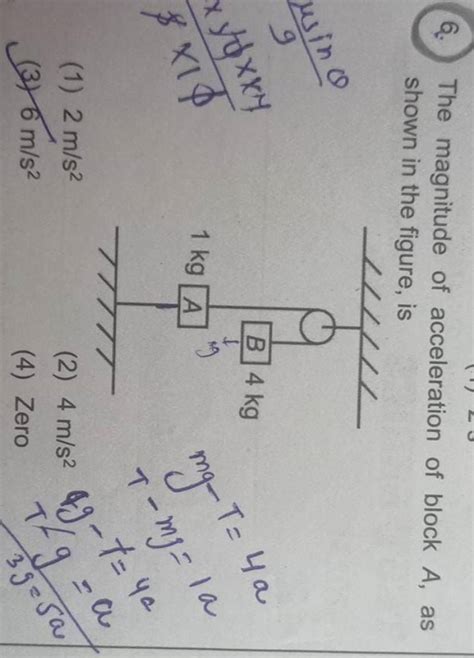 6. The magnitude of acceleration of block A, as
shown in the figure, is
B 4 kg
mg
1 kg A
(1) 2 m/s²
(2) 4 m/s²
(3) 6 m/s²
(4) Zero
mg - T = 4a
T - mg = 1a
4g - T = 4a
T - g = a
3g = 5a